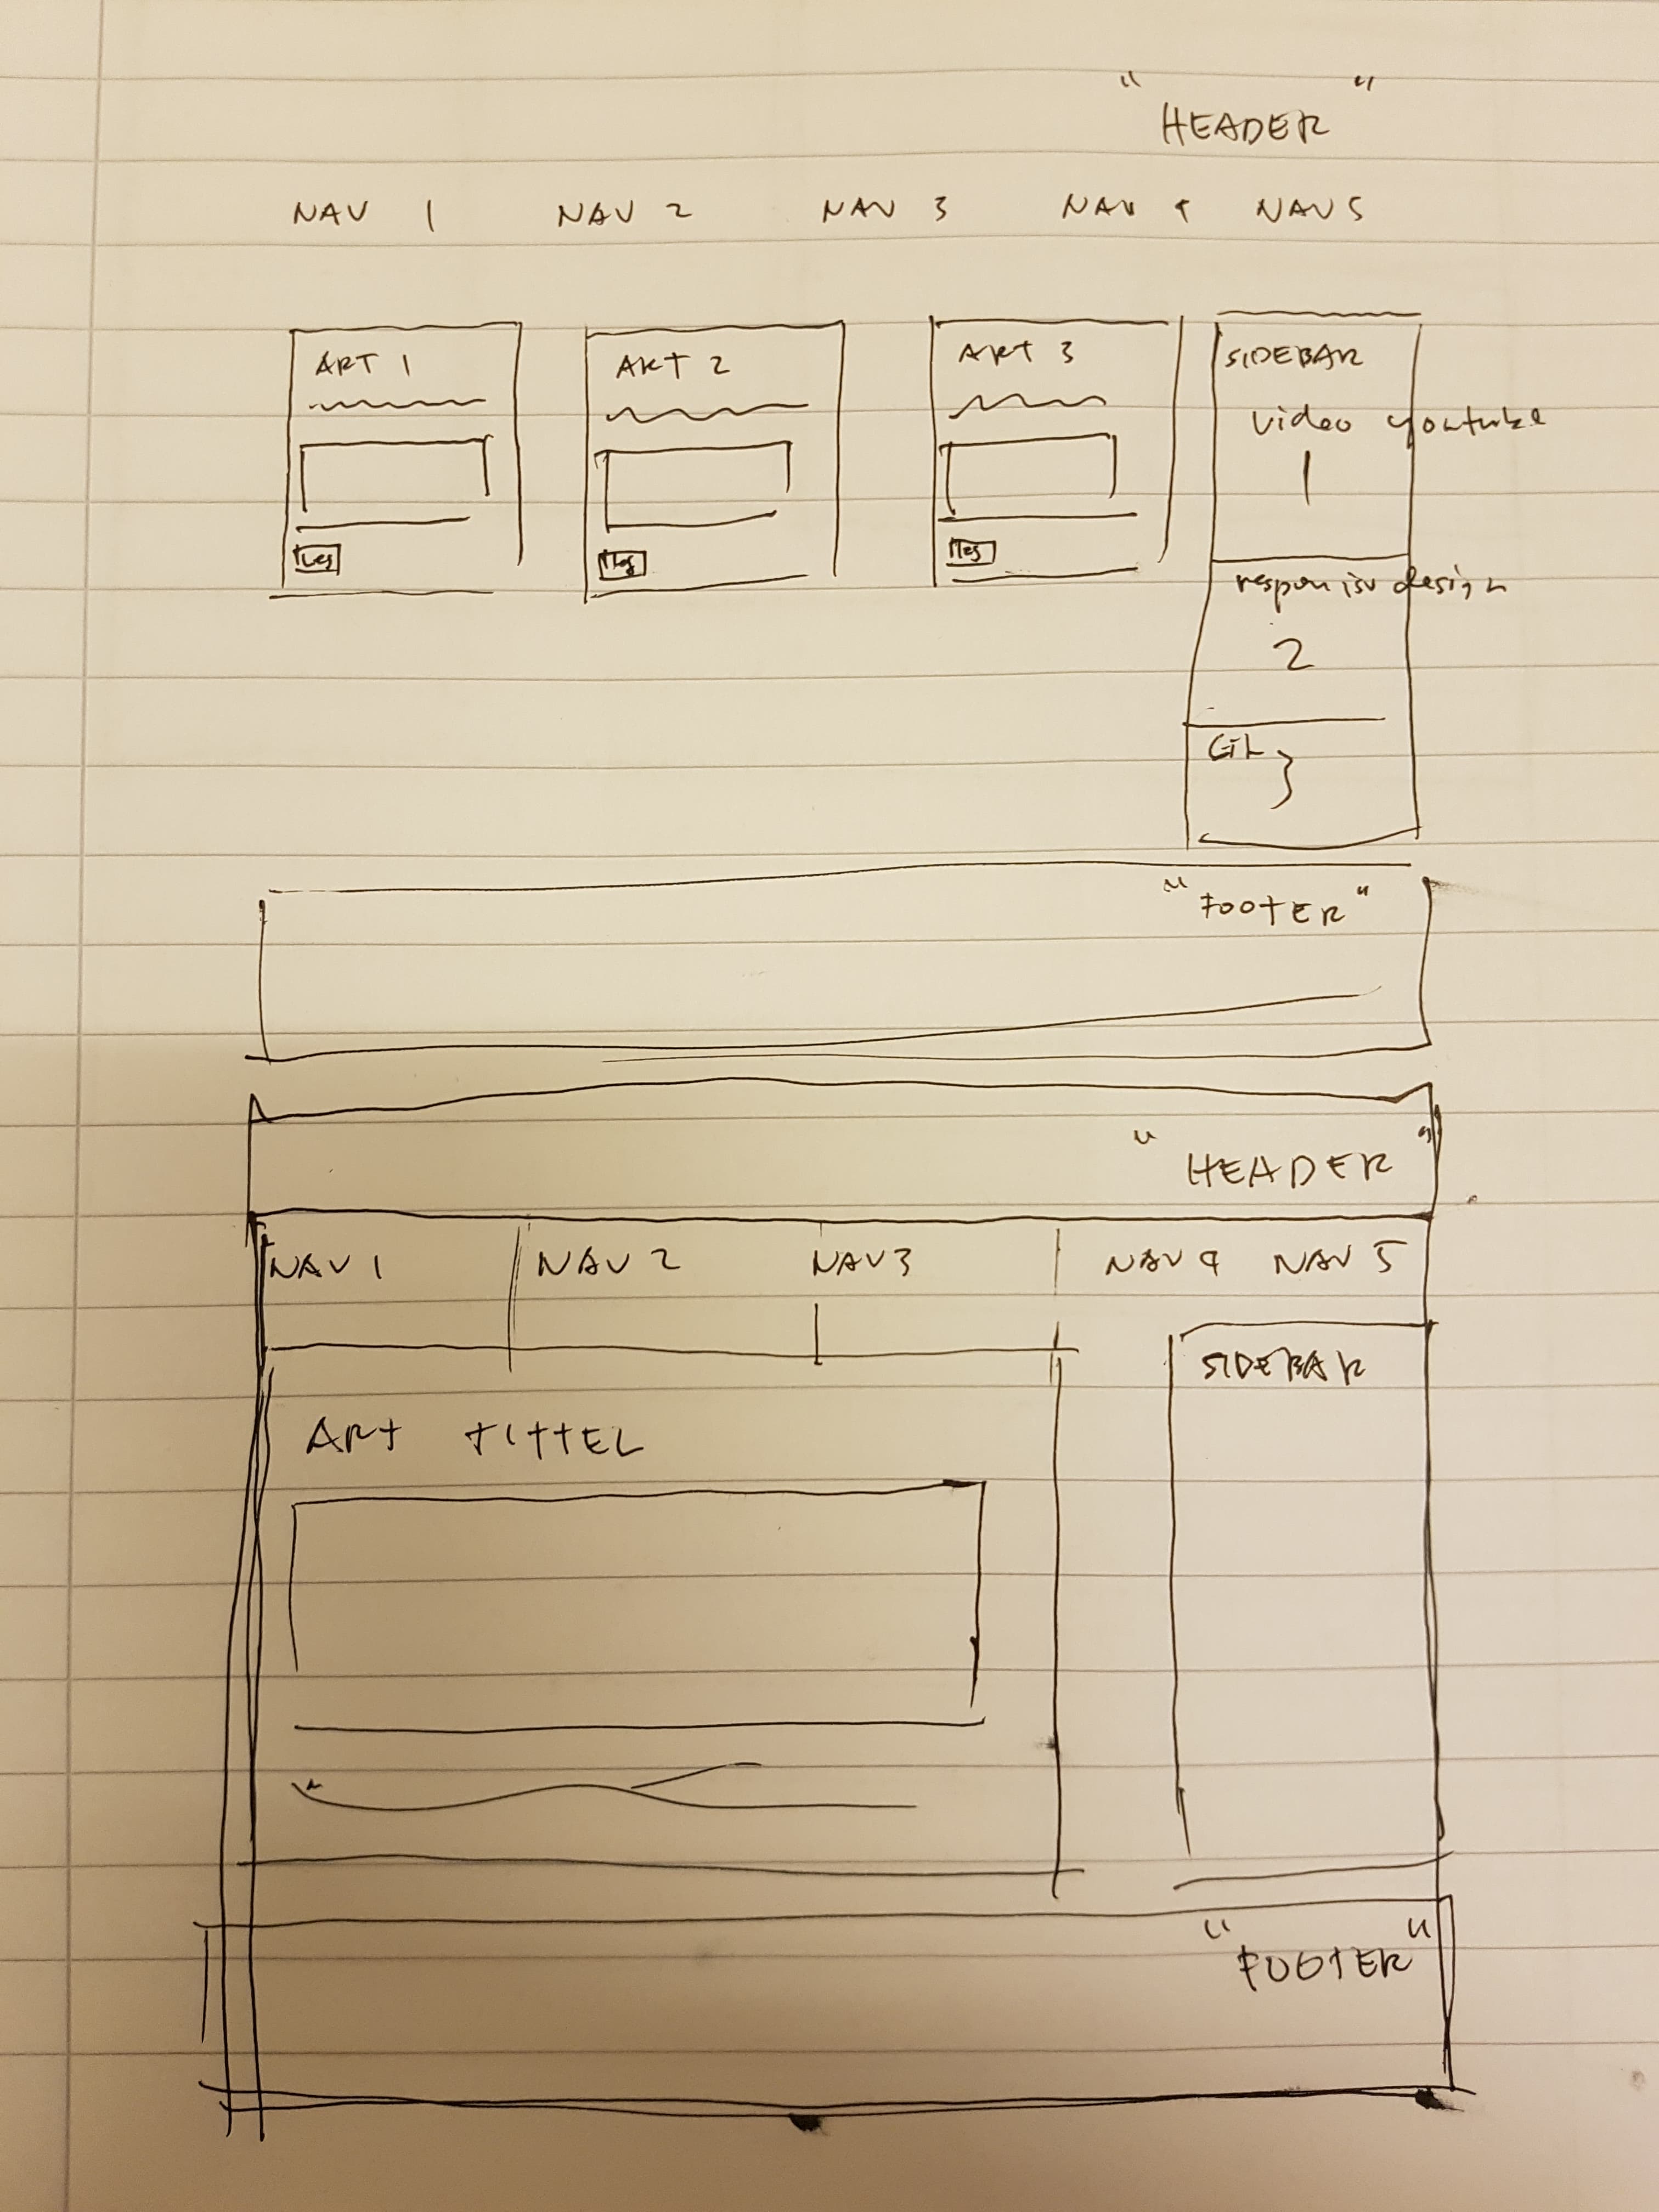 " HEADER "
NAV 1 NAV 2 NAV 3 NAV 4 NAV 5
ART 1 ART 2 ART 3 SIDEBAR
video youtube
1
Les
responisv design
2
Git
3
"FOOTER"
" HEADER "
NAV 1 NAV 2 NAV 3 NAV 4 NAV 5
SIDEBAR
ART TITTEL
"FOOTER"